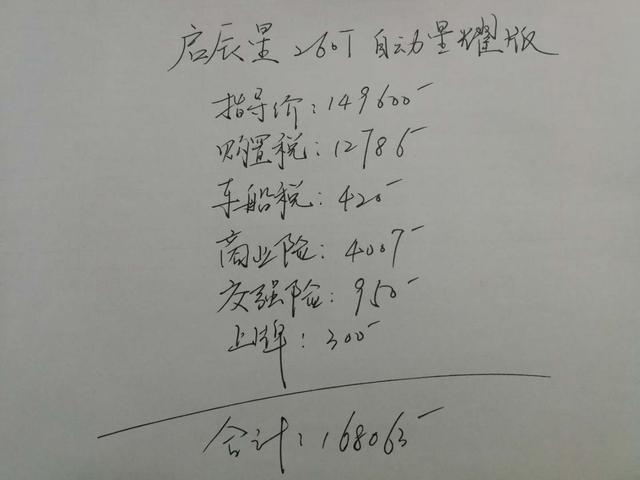 启辰星260T自动星耀版
指导价:149600-
购置税:12786-
车船税:420-
商业险:4007-
交强险:950-
上牌:300-
合计:168063-